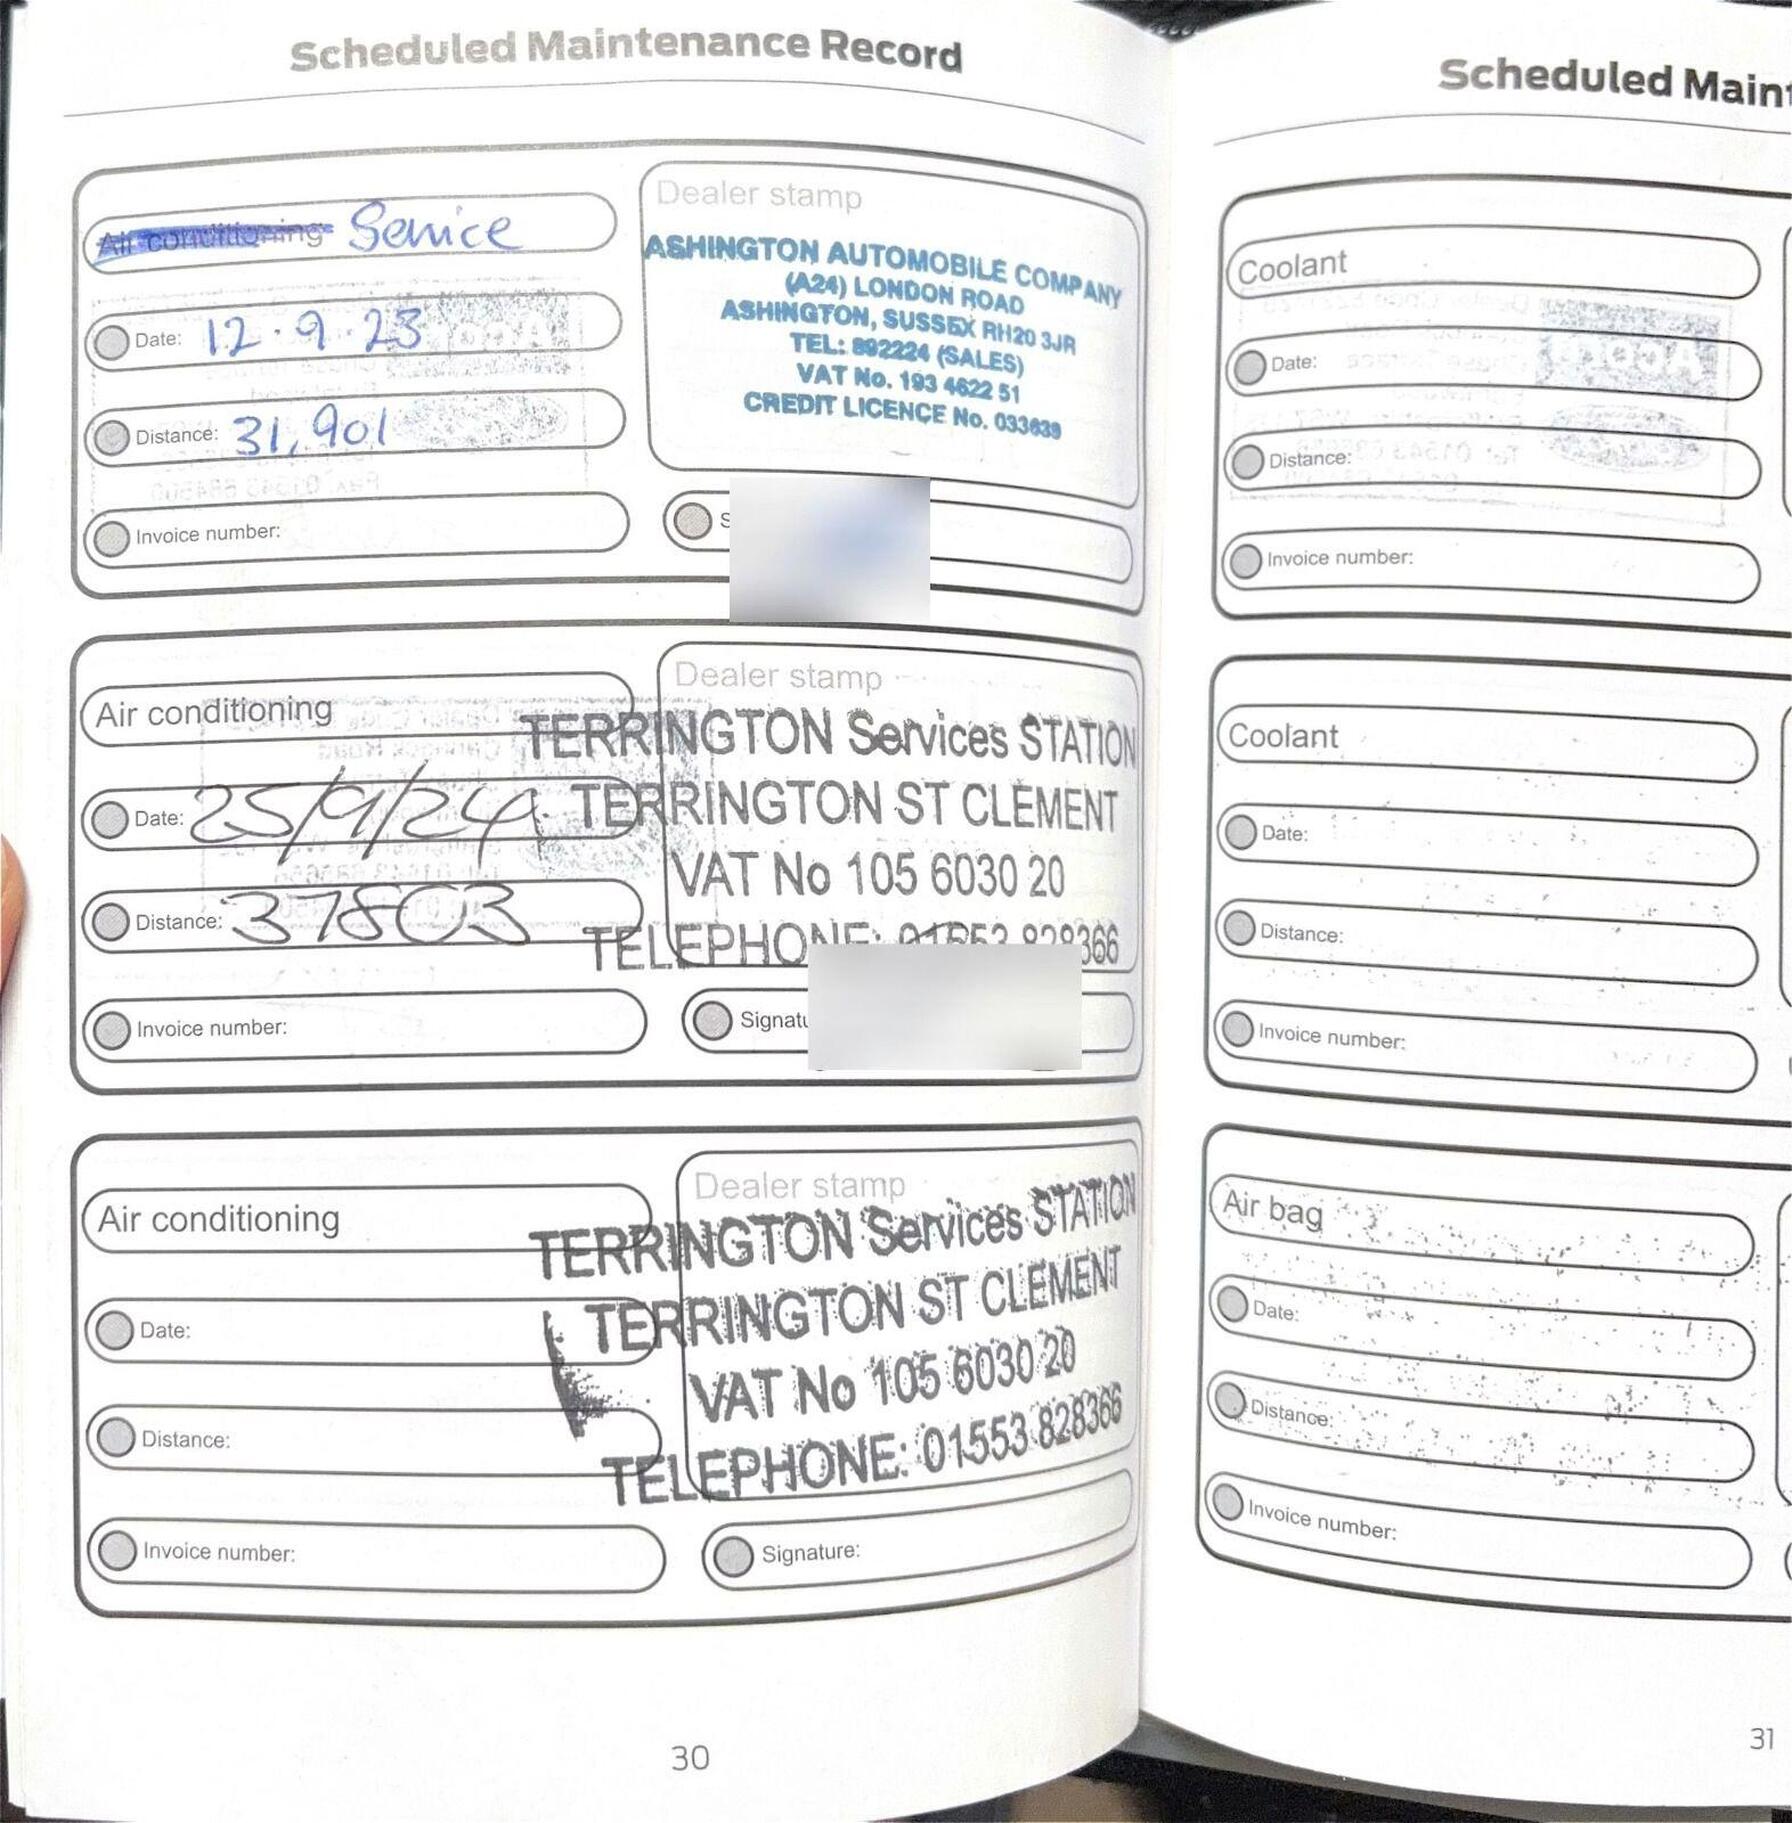 Scheduled Maintenance Record
Air conditioning Service
Date: 12.9.23
Distance: 31,901
Invoice number:
Dealer stamp
ASHINGTON AUTOMOBILE COMPANY
(A24) LONDON ROAD
ASHINGTON, SUSSEX RH20 3JR
TEL: 892224 (SALES)
VAT No. 193 4622 51
CREDIT LICENCE No. 033639
Air conditioning
Date: 25/9/24
Distance: 37803
Invoice number:
Dealer stamp
TERRINGTON Services STATION
TERRINGTON ST CLEMENT
VAT No 105 6030 20
TELEPHONE: 01553 828366
Signatu
Air conditioning
Date:
Distance:
Invoice number:
Dealer stamp
TERRINGTON Services STATION
TERRINGTON ST CLEMENT
VAT No 105 6030 20
TELEPHONE: 01553 828366
Signature:
30
Scheduled Maint
Coolant
Date:
Distance:
Invoice number:
Coolant
Date:
Distance:
Invoice number:
Air bag
Date:
Distance:
Invoice number:
31